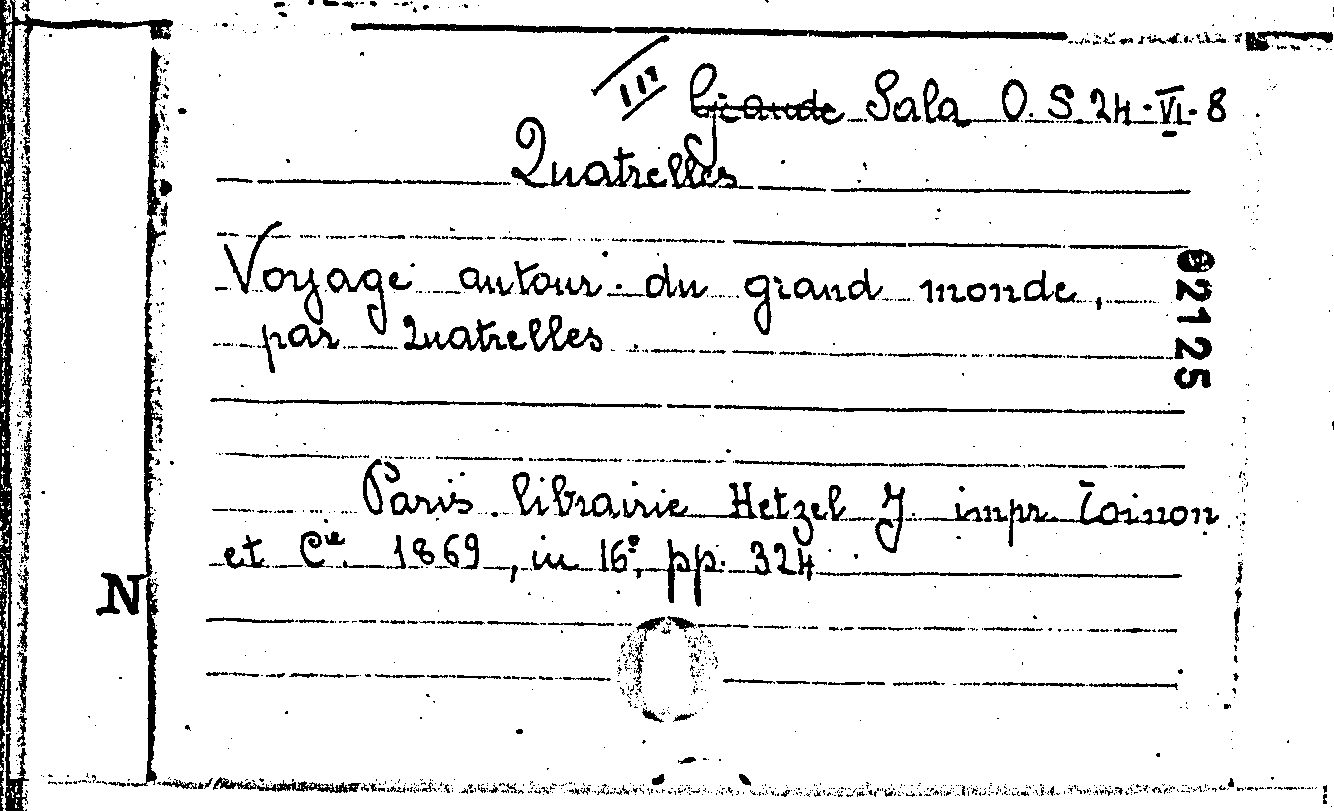 III Grande Sala O. S. 24-VI-8
Quatrelles
Voyage autour du grand monde,
par Quatrelles.
92125
Paris. librairie Hetzel J. impr. Toinon
et Cie. 1869, in 16°, pp. 324
N